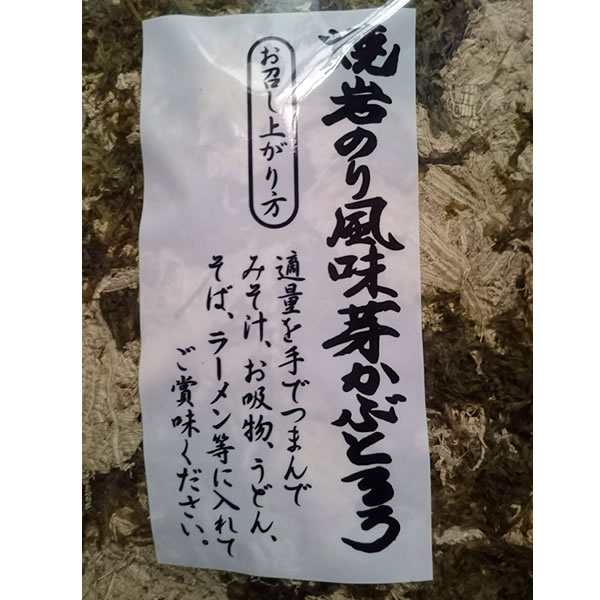 焼岩のり風味芽かぶとろろ
お召し上がり方
適量を手でつまんで
みそ汁、お吸物、うどん、
そば、ラーメン等に入れて
ご賞味ください。